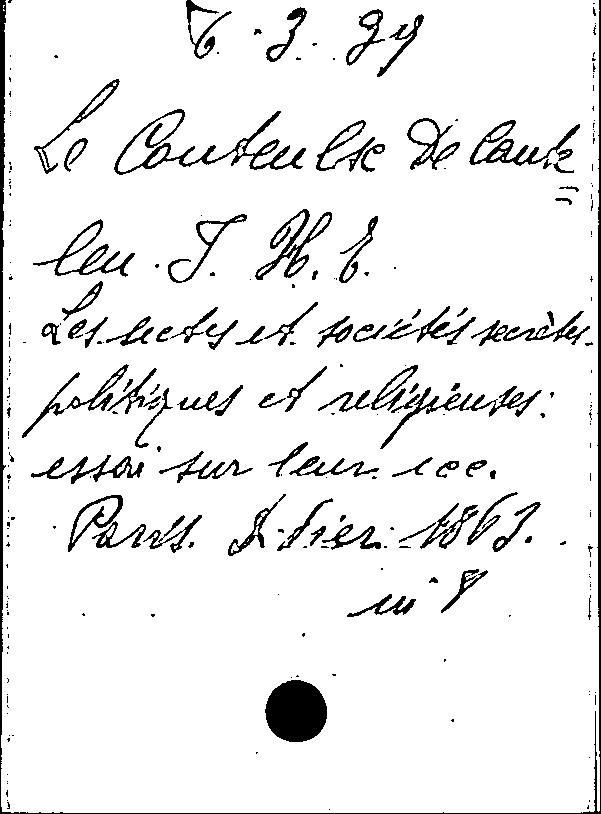 6.3.24
Le Couteulse De Cante
leu. J. H. E.
Les sectes et sociétés secrètes
politiques et religieuses:
essai sur leur
Paris. Didier. 1863.
in 8